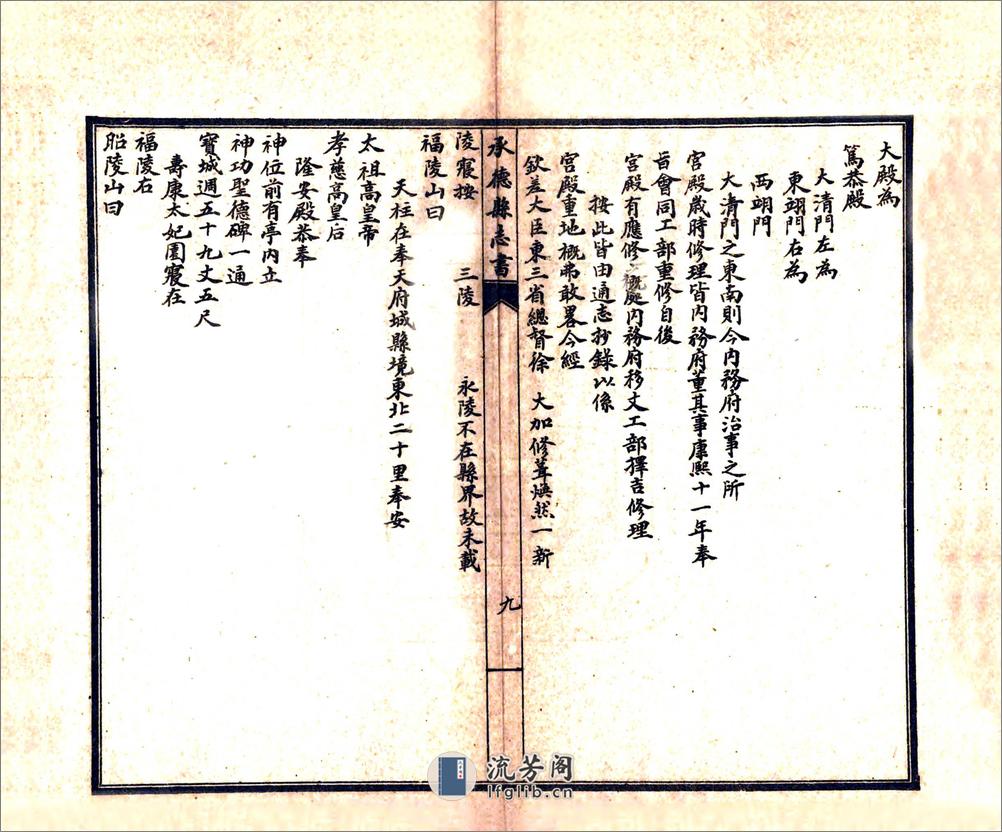 大殿為
大清門左為
東翊門右為
篤恭殿
西翊門
大清門之東南則今內務府治事之所
宮殿歲時修理皆內務府董其事康熙十一年奉
旨會同工部重修自後
宮殿有應修 處內務府移文工部擇吉修理
按此皆由通志抄錄以係
宮殿重地概弗敢畧今經
欽差大臣東三省總督徐 大加修葺煥然一新
承德縣志書
九
陵寢按 三陵 永陵不在縣界故未載
福陵山曰
天柱在奉天府城縣境東北二十里奉安
太祖高皇帝
孝慈高皇后
隆安殿恭奉
神位前有亭內立
神功聖德碑一通
寶城週五十九丈五尺
壽康太妃園寢在
福陵右
昭陵山曰
流芳阁
lfglib.cn